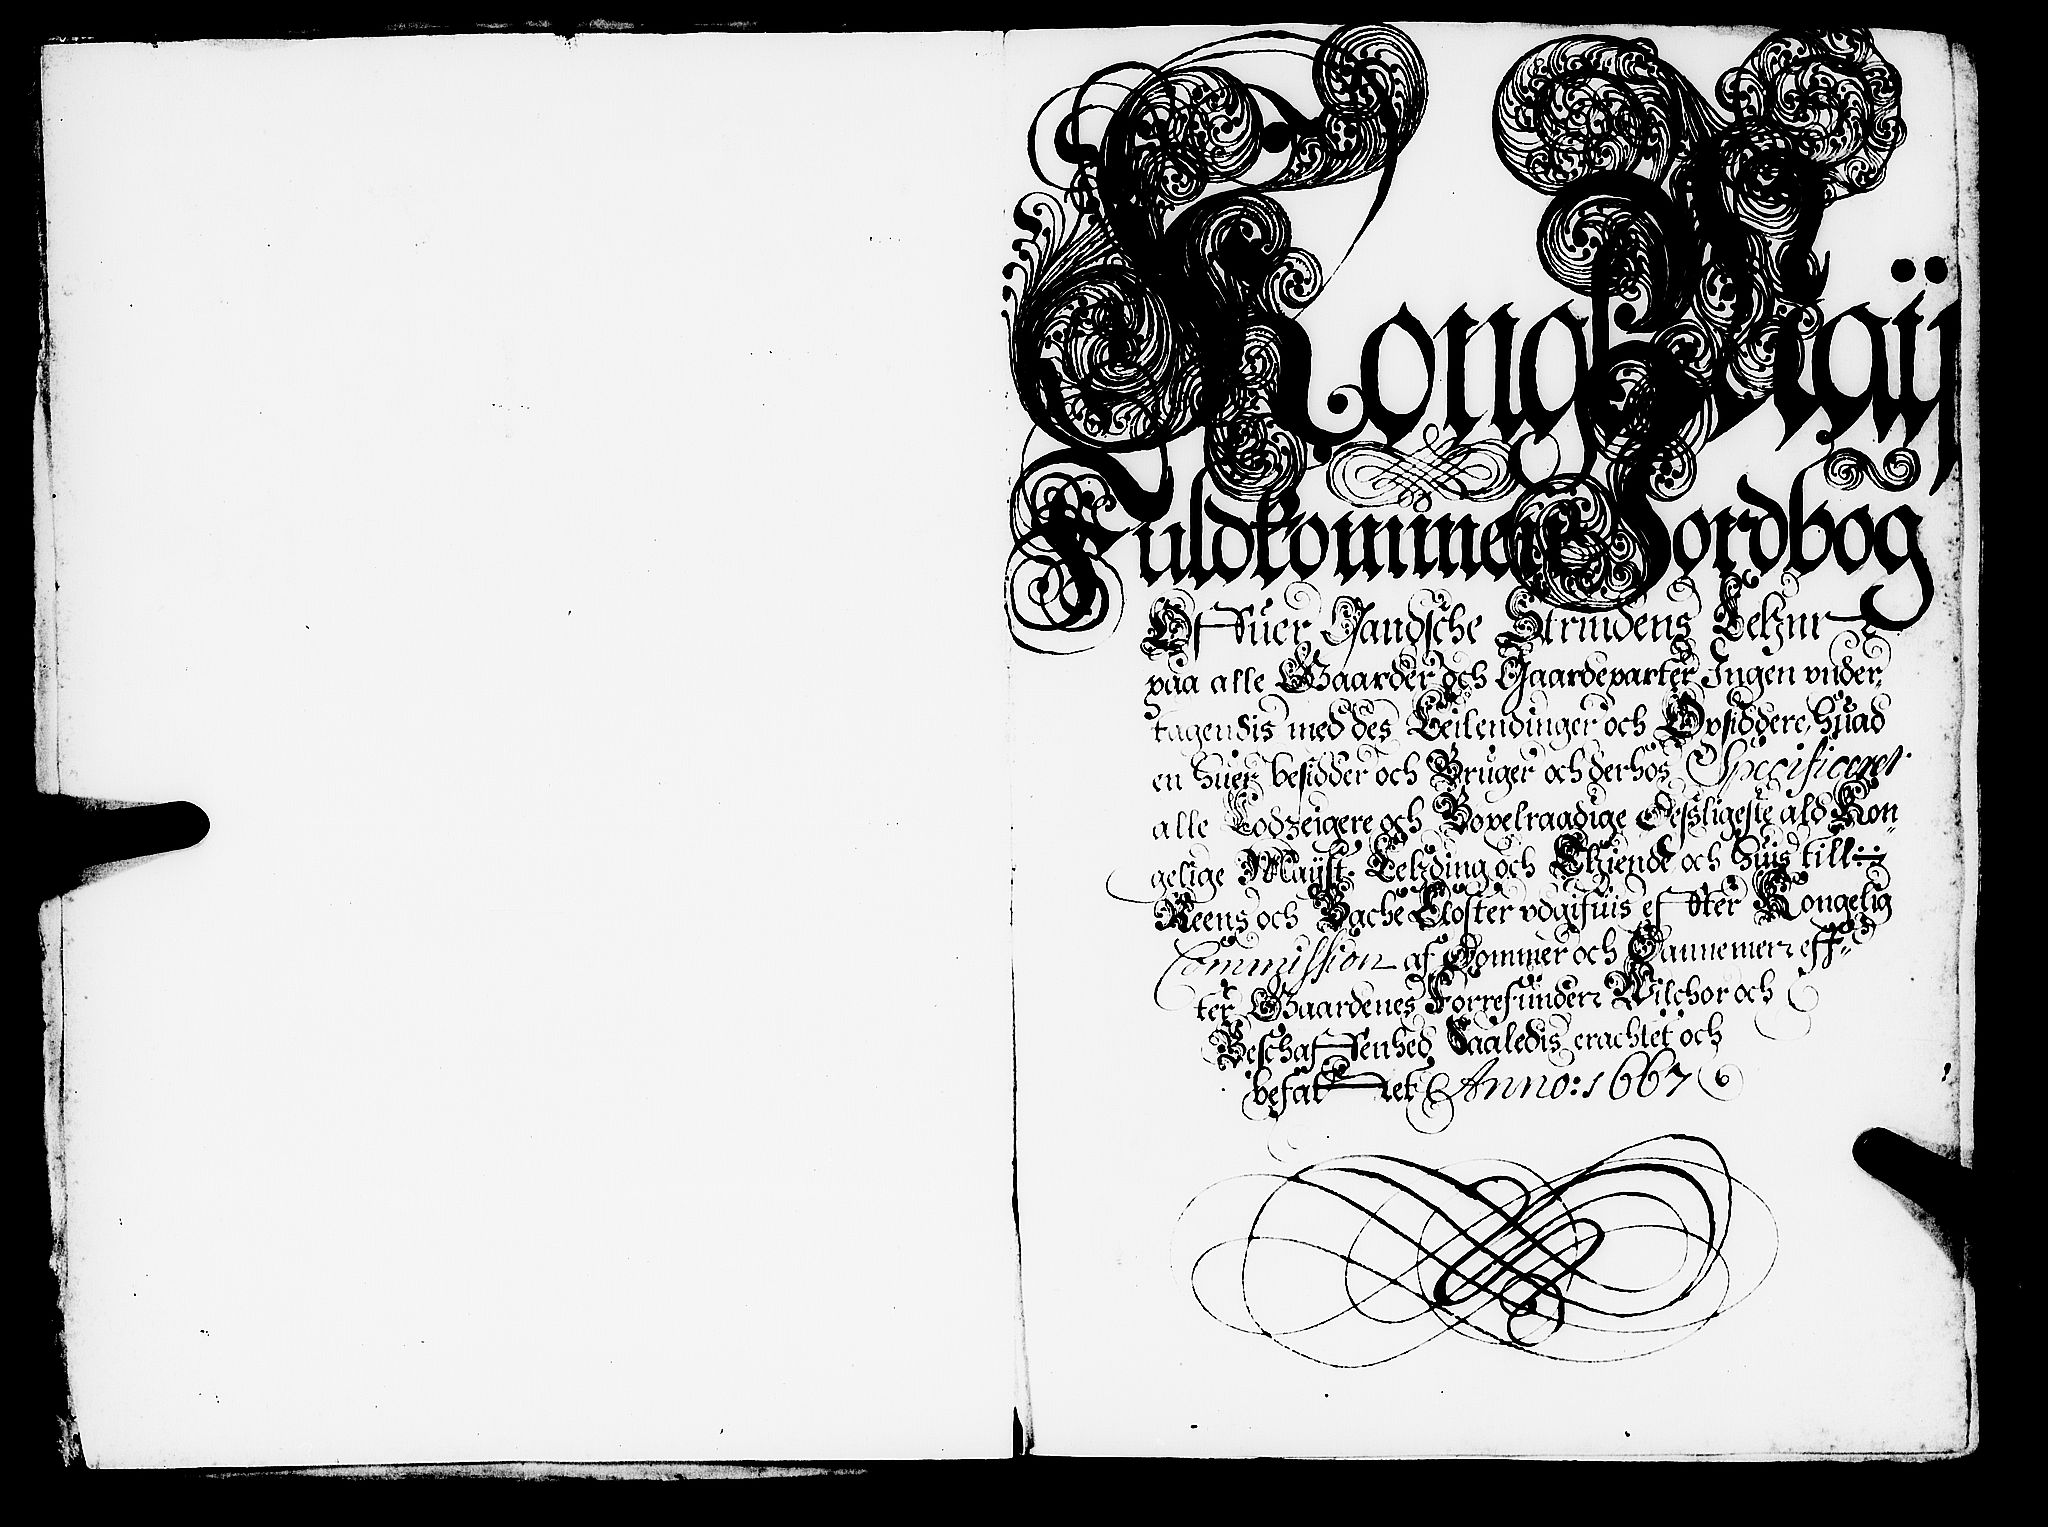 Kong: Maÿ
Fuldkommen Jordbog
Offuer Gandsche Strindens Lehnr
paa alle Gaarder och Gaardeparter Ingen vnder,
tagendis med des Leilendinger och Opsiddere, huad
en huer besidder och Bruger och derhos Specificeret
alle Lodzeigere och Bopelraadige Desligeste ald Kon,
gelige Maÿst. Lehding och Thiende och huis till
Reens och Bache Closter vdgifuis effter Kongelig
Commission af Dommer och Dannemen eff,,
ter Gaardenes Forrefunden Wilchor och
Beschaffenhed Saaledis erachtet och
befattet Anno: 1667